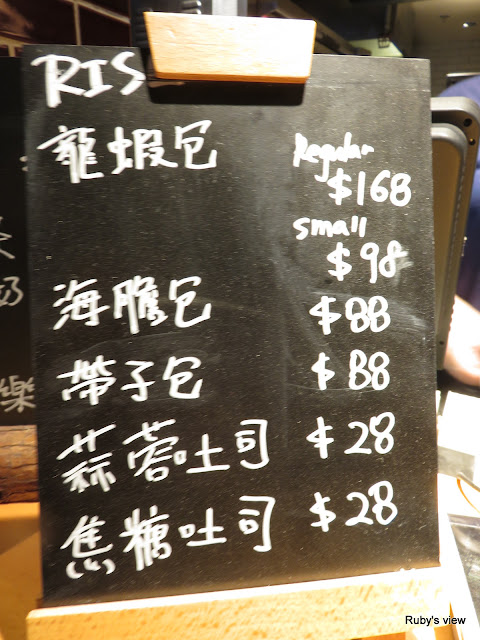 RIS
龍蝦包 Regular
$168
small
$98
海膽包 $88
帶子包 $88
蒜蓉吐司 $28
焦糖吐司 $28
樂
Ruby's view